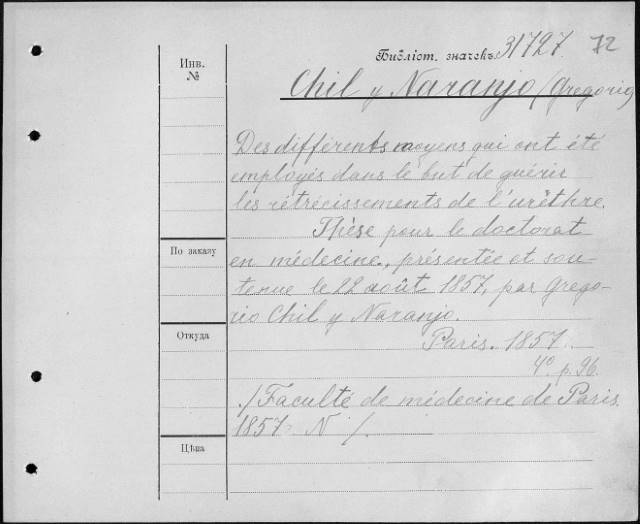 Библіот. значекъ 31727 72
Инв.
№
Chil y Naranjo /Gregorio/
Des différents moyens qui ont été
employés dans le but de guérir
les rétrécissements de l'urèthre.
Thèse pour le doctorat
По заказу
en médecine, présentée et sou-
tenue le 22 août 1857, par Grego-
rio Chil y Naranjo.
Откуда
Paris. 1857.
4º. p. 96.
/Faculté de médecine de Paris.
1857 N /.
Цѣна